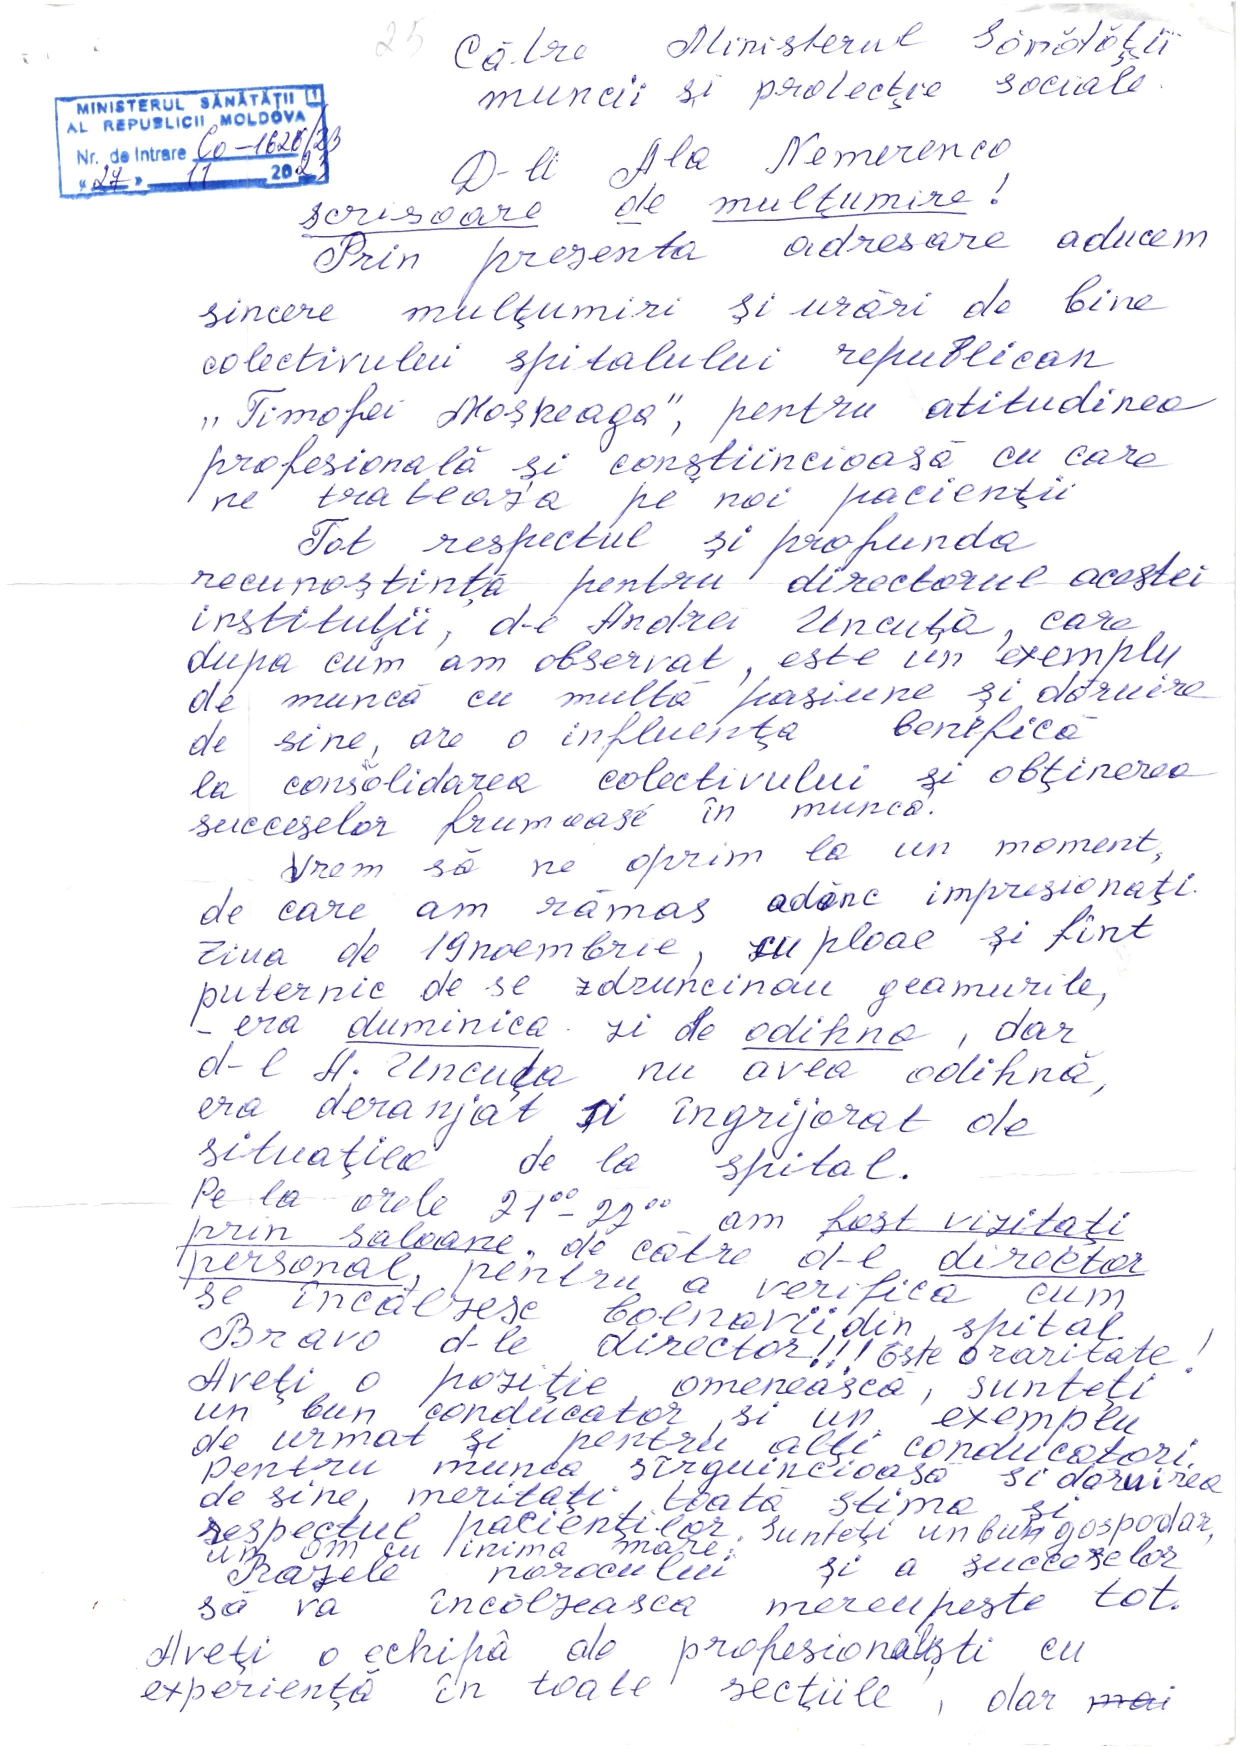 25
Către Ministerul Sănătății
muncii și protecție sociale.
MINISTERUL SĂNĂTĂȚII 1
AL REPUBLICII MOLDOVA
Nr. de intrare Co-1626/23
"27" 11 2023
D-li Ala Nemerenco
scrisoare de mulțumire!
Prin prezenta adresare aducem
sincere mulțumiri și urări de bine
colectivului spitalului republican
„Timofei Moșneaga", pentru atitudinea
profesională și conștiincioasă cu care
ne tratează pe noi pacienții
Tot respectul și profunda
recunoștință pentru directorul acestei
instituții, d-l Andrei Uncuță, care
dupa cum am observat, este un exemplu
de muncă cu multă pasiune și dăruire
de sine, are o influența benefică
la consolidarea colectivului și obținerea
succeselor frumoase în muncă.
Vrem să ne oprim la un moment,
de care am rămas adânc impresionați.
Ziua de 19 noembrie, cu ploae și fînt
puternic de se zdruncinau geamurile,
- era duminica zi de odihna, dar
d-l A. Uncuța nu avea odihnă,
era deranjat și îngrijorat de
situația de la spital.
Pe la orele 21⁰⁰-22⁰⁰ am fost vizitați
prin saloane, de către d-l director
personal, pentru a verifica cum
se încălzesc bolnavii din spital.
Bravo d-le director!!! Este o raritate!
Aveți o poziție omenească, sunteți
un bun conducator si un exemplu
de urmat și pentru alți conducatori.
Pentru munca sîrguincioasă si daruirea
de sine, meritați toată stima și
respectul pacienților. Sunteți un bun gospodar,
un om cu inima mare.
Razele norocului și a succeselor
să va încălzeasca mereu peste tot.
Aveți o echipă de profesionaliști cu
experiență în toate secțiile, dar mai